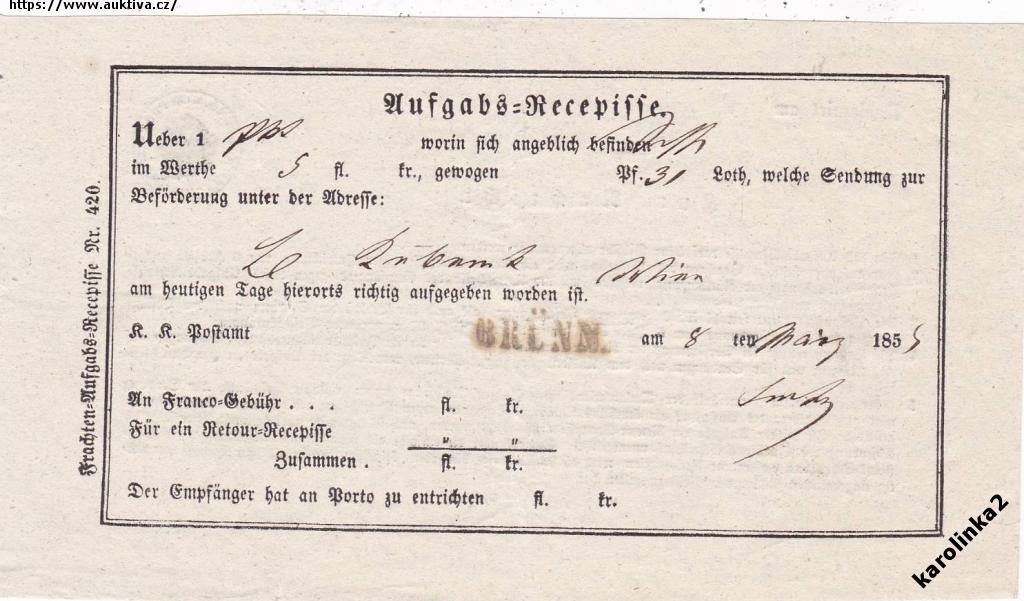 https://www.auktiva.cz/
Aufgabs-Recepisse.
Ueber 1 worin sich angeblich befinden
im Werthe 5 fl. kr., gewogen Pf. 31 Loth, welche Sendung zur
Beförderung unter der Adresse:
Wien
am heutigen Tage hierorts richtig aufgegeben worden ist.
K. K. Postamt BRÜNN. am 8 ten März 1855
An Franco-Gebühr . . . fl. kr.
Für ein Retour-Recepisse " "
Zusammen . fl. kr.
Der Empfänger hat an Porto zu entrichten fl. kr.
Frachten-Aufgabs-Recepisse Nr. 420.
karolinka2